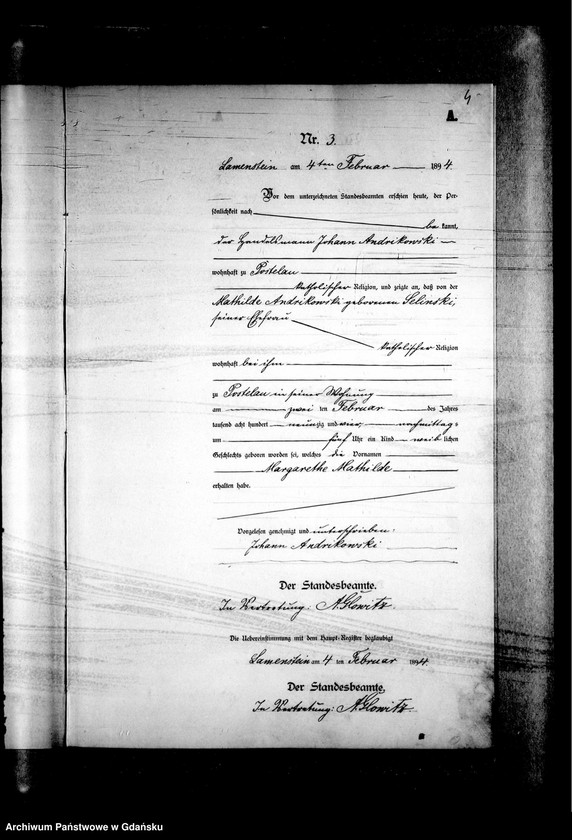 4
A.
Nr. 3.
Lamenstein am 4ten Februar 1894.
Vor dem unterzeichneten Standesbeamten erschien heute, der Per-
sönlichkeit nach
be kannt,
der Handelsmann Johann Andrikowski
wohnhaft zu Postelau
katholischer Religion, und zeigte an, daß von der
Mathilde Andrikowski geborenen Selinski,
seiner Ehefrau
katholischer Religion
wohnhaft bei ihm
zu Postelau in seiner Wohnung
am zwei ten Februar des Jahres
tausend acht hundert neunzig und vier, nachmittags
um fünf Uhr ein Kind weib lichen
Geschlechts geboren worden sei, welches die Vornamen
Margarethe Mathilde
erhalten habe.
Vorgelesen, genehmigt und unterschrieben:
Johann Andrikowski
Der Standesbeamte.
In Vertretung: A. Glowitz.
Die Uebereinstimmung mit dem Haupt-Register beglaubigt
Lamenstein am 4 ten Februar 1894.
Der Standesbeamte,
In Vertretung: A. Glowitz.
Archiwum Państwowe w Gdańsku